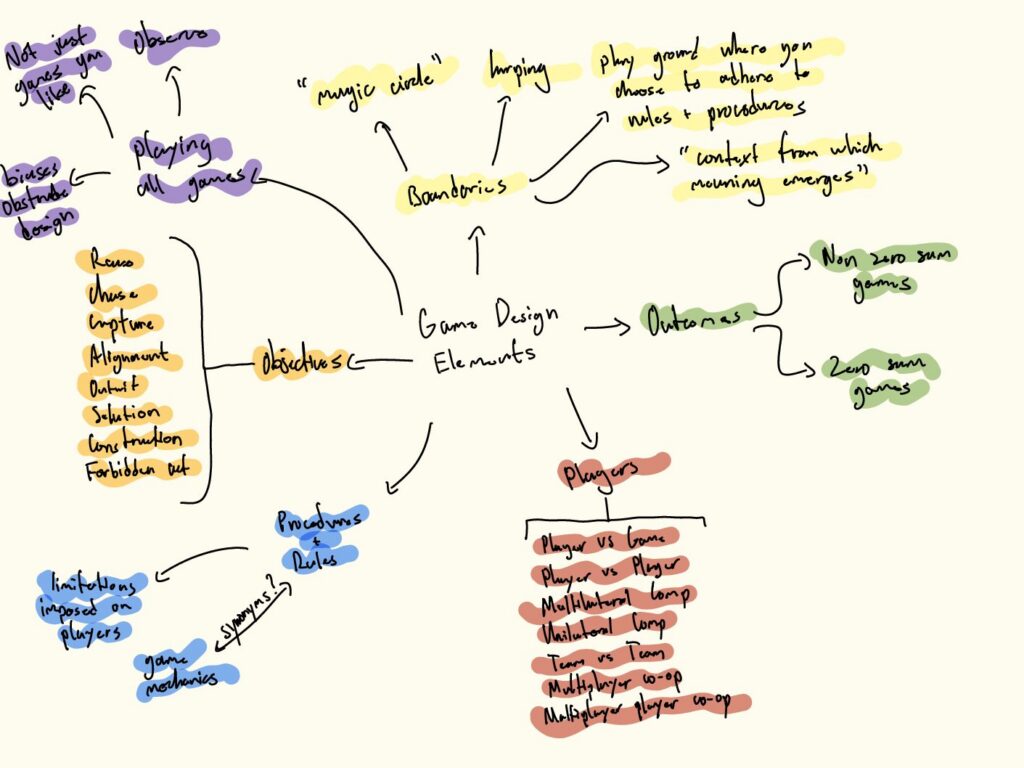 Game Design
Elements
Not just
games you
like
Observe
playing
all games
biases
obstruct
design
"magic circle"
larping
play ground where you
choose to adhere to
rules + procedures
Boundaries
"context from which
meaning emerges"
Outcomes
Non zero sum
games
Zero sum
games
Objectives
Chase
Capture
Alignment
Outwit
Solution
Construction
Forbidden act
Procedures
+
Rules
limitations
imposed on
players
synonyms?
game
mechanics
Players
Player vs Game
Player vs Player
Multilateral Comp
Unilateral Comp
Team vs Team
Multiplayer co-op
Multiplayer player co-op